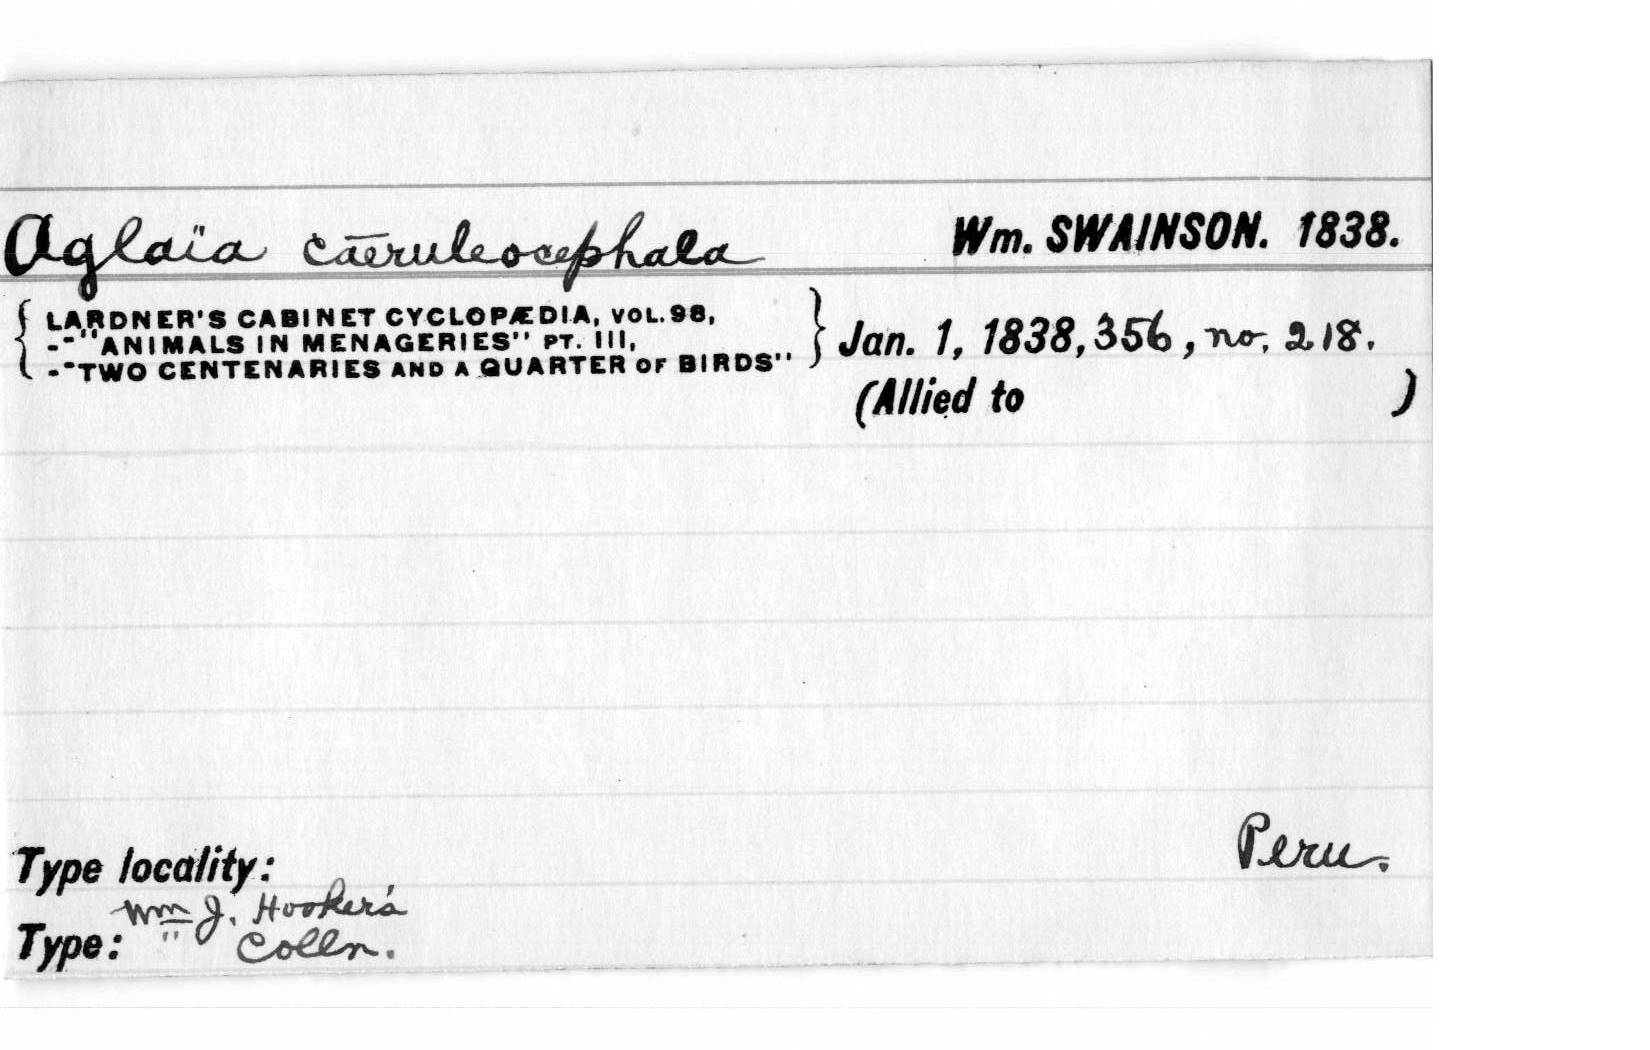 Aglaïa cāeruleocephala Wm. SWAINSON. 1838.
{ LARDNER'S CABINET CYCLOPÆDIA, VOL. 98,
-- "ANIMALS IN MENAGERIES" PT. III,
-- "TWO CENTENARIES AND A QUARTER OF BIRDS" } Jan. 1, 1838, 356, no. 218.
(Allied to )
Peru.
Type locality:
Wm J. Hooker's
Type: " Colln.